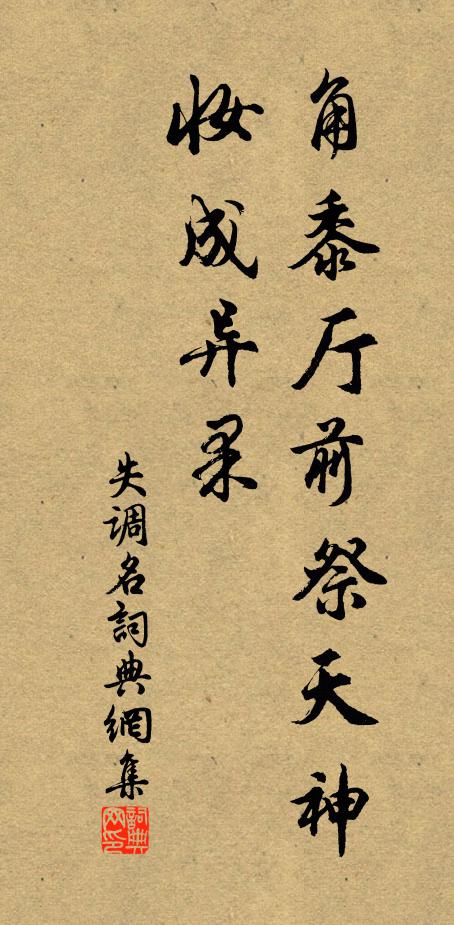 角黍厅前祭天神
妆成异果
失调名詞典網集
詞典网印